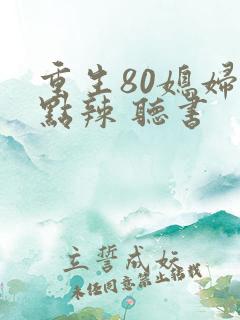 重生80媳婦
點辣 聽書
立誓成妖
未经同意禁止转载